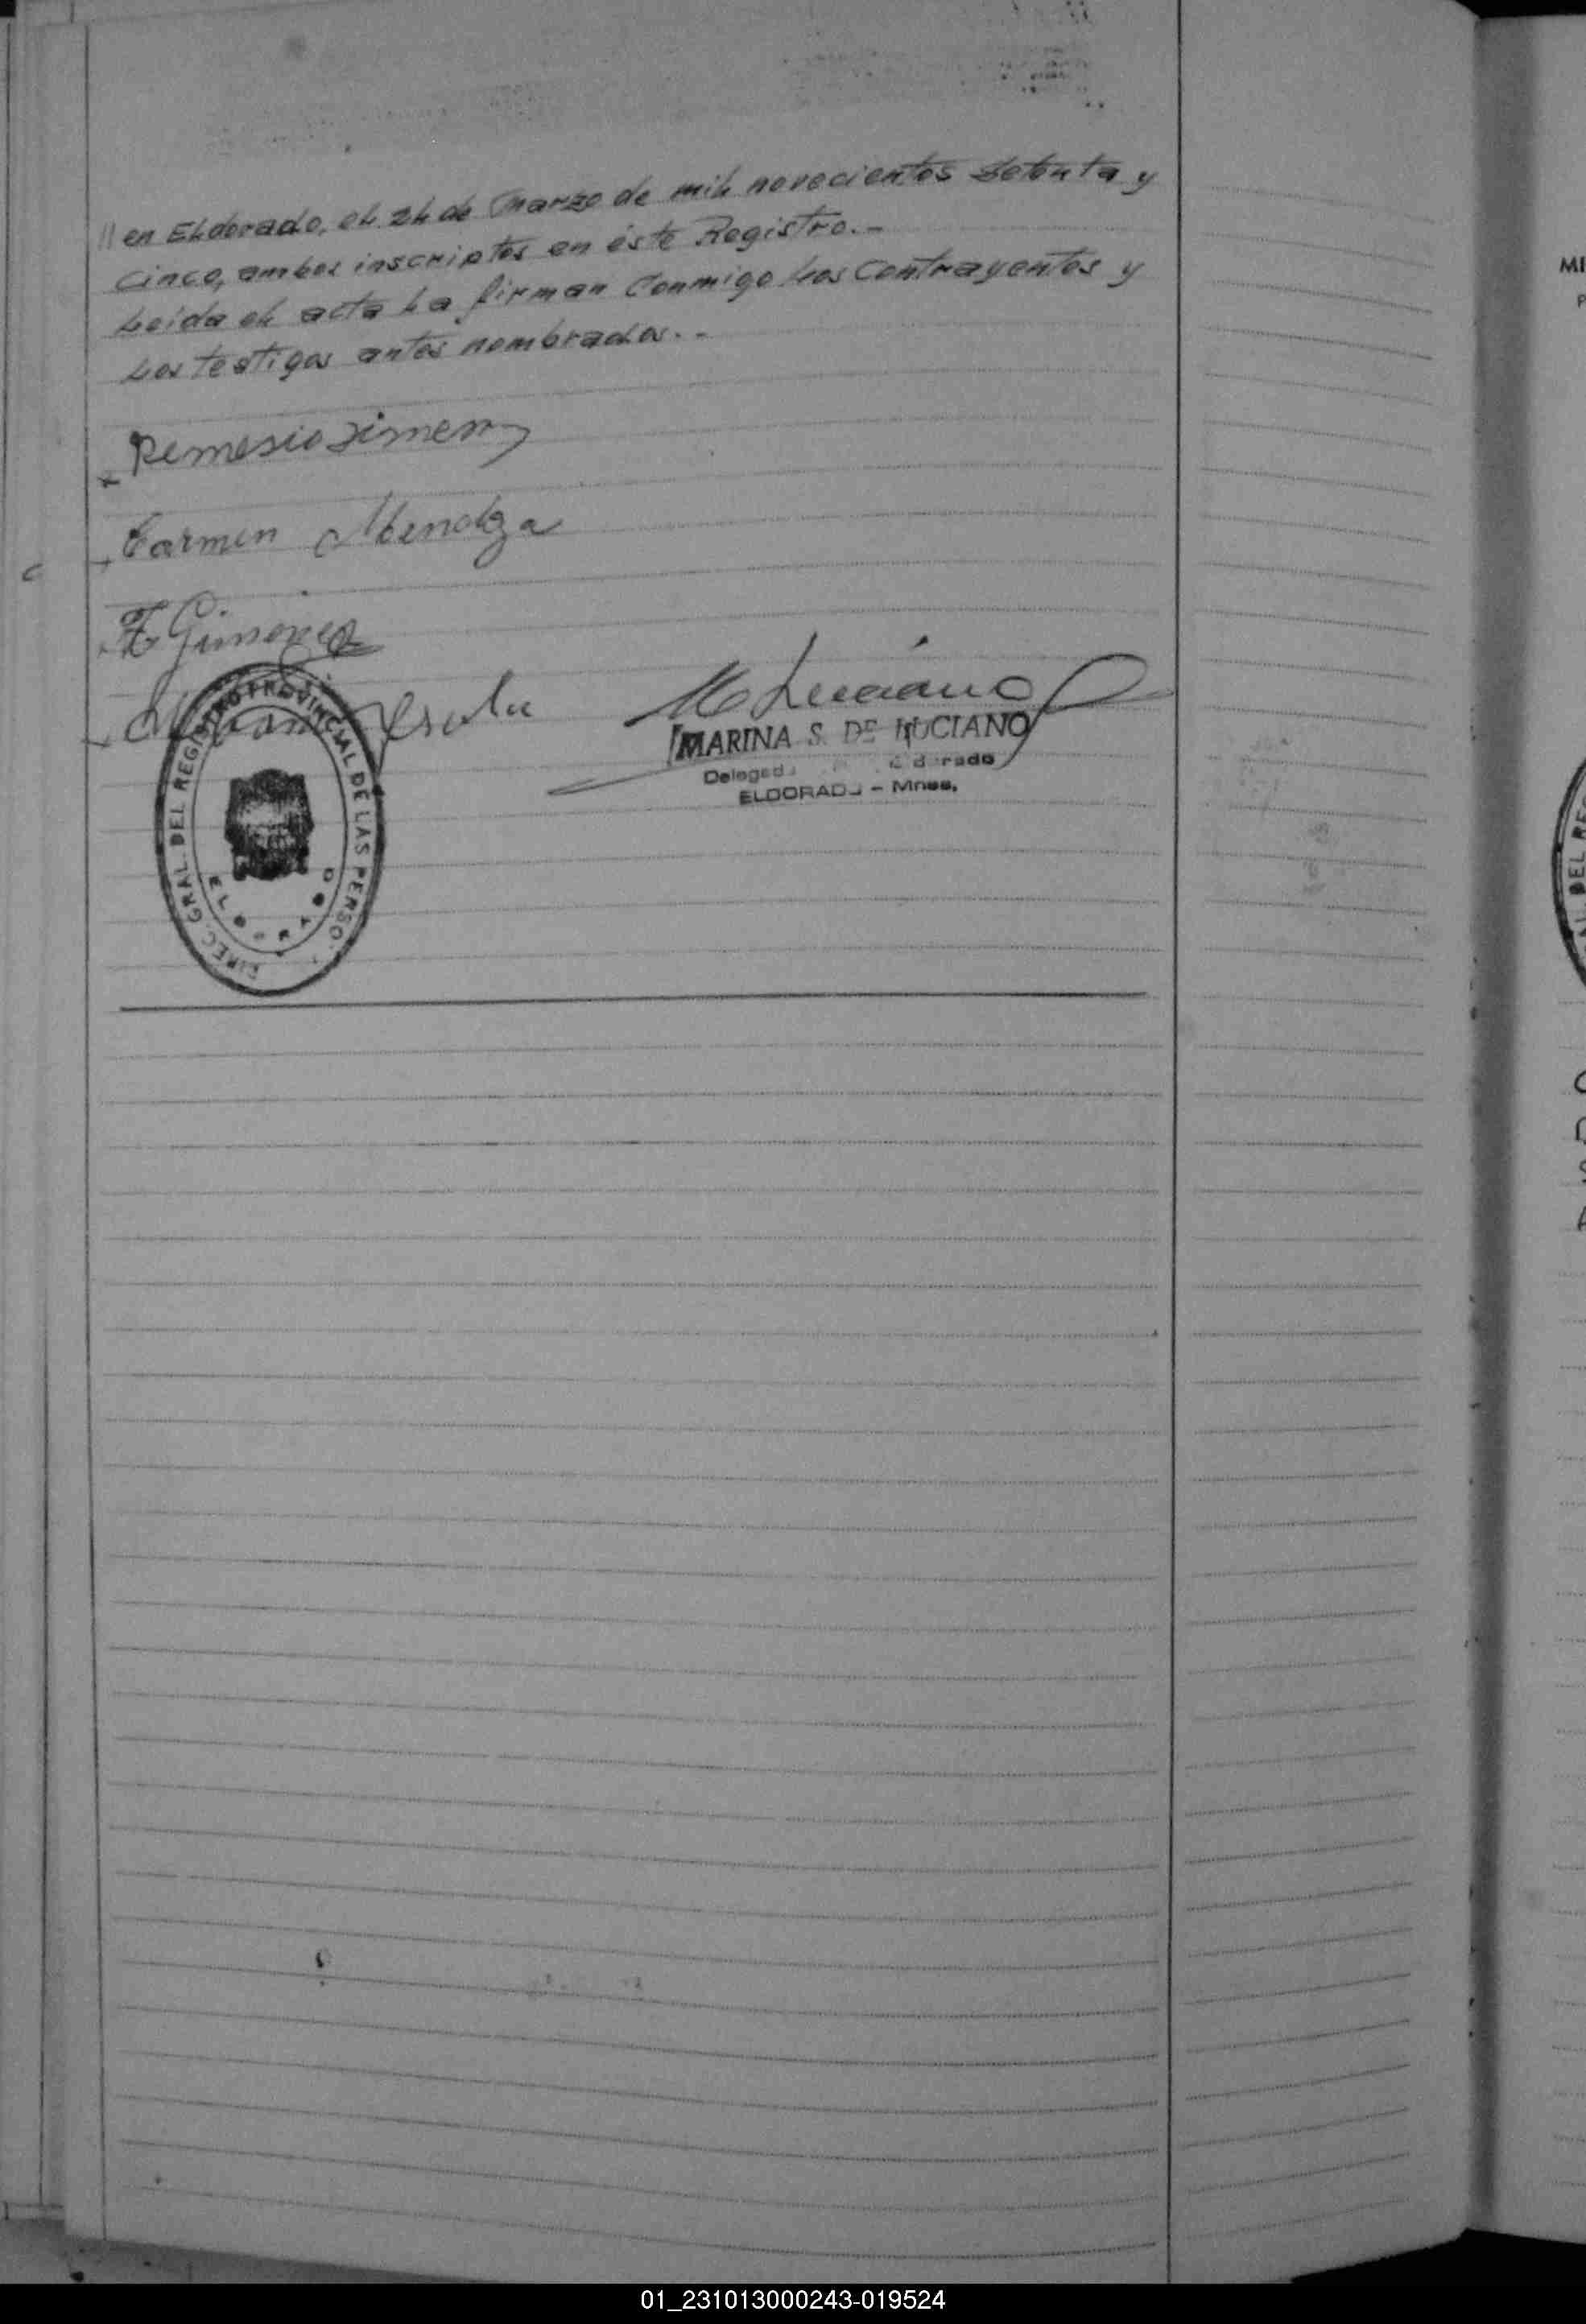 // en Eldorado, el 24 de Marzo de mil novecientos setenta y
cinco, ambos inscriptos en éste Registro.-
Leida el acta la firman conmigo los contrayentes y
los testigos antes nombrados.-
Remesio Jimenz
Carmen Mendoza
F Gimenez
M Luciano
MARINA S. DE LUCIANO
Delegad
ELDORADO - Mnes.
DIREC. GRAL. DEL REGISTRO PROVINCIAL DE LAS PERSO
ELDORADO
MI
P
DEL RE
01_231013000243-019524